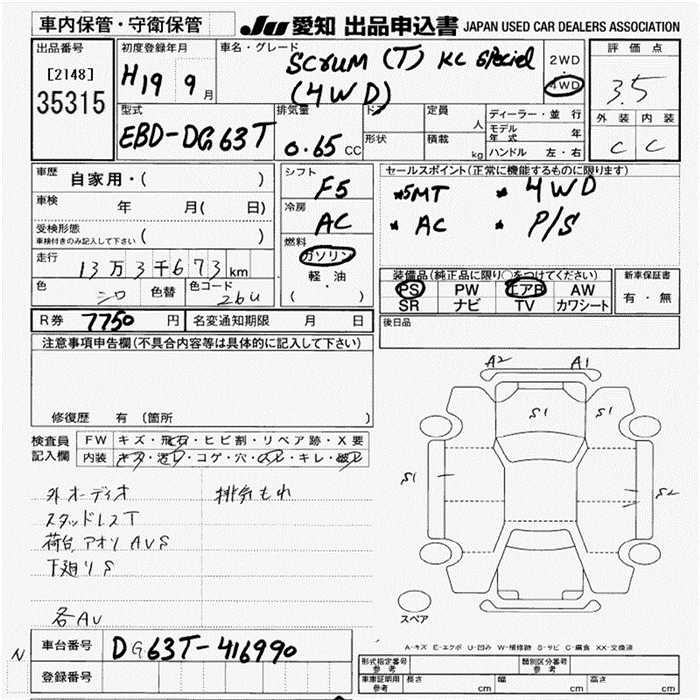 車内保管・守衛保管
JU 愛知 出品申込書 JAPAN USED CAR DEALERS ASSOCIATION
出品番号
[2148]
35315
初度登録年月
H19 9月
車名・グレード
SCRUM (T) KC special
(4WD)
2WD
4WD
評価点
3.5
外装 内装
C C
型式
EBD-DG63T
排気量
0.65 CC
ドア
形状
定員 人
積載 kg
ディーラー・並行
モデル年式 年
ハンドル 左・右
車歴 自家用・( )
車検 年 月( 日)
受検形態
車検付きのみ記入して下さい ( )
走行 13万3千673km
色 シロ 色替 色コード 26U
シフト F5
冷房 AC
燃料
ガソリン
軽油
( )
セールスポイント(正常に機能するものに限ります)
*5MT * 4WD
* AC * P/S
装備品(純正品に限り○をつけてください)
PS PW エアB AW
SR ナビ TV カワシート
新車保証書
有・無
R券 7750円 名変通知期限 月 日
後日品
注意事項申告欄(不具合内容等は具体的に記入して下さい)
修復歴 有(箇所 )
検査員
記入欄
FW キズ・飛石・ヒビ割・リペア跡・X要
内装 キズ・汚レ・コゲ・穴・スレ・キレ・破レ
外オーディオ 排気もれ
スタッドレスT
荷台、アオリAUS
下廻りS
各AU
A2 A1
S1 S1
S1 S2
スペア
A-キズ E-エクボ U-凹み W-補修跡 S-サビ C-腐食 XX-交換済
N
車台番号 DG63T-416990
登録番号
型式指定番号
参考
類別区分番号
参考
車庫証明用
参考
長さ cm 幅 cm 高さ cm